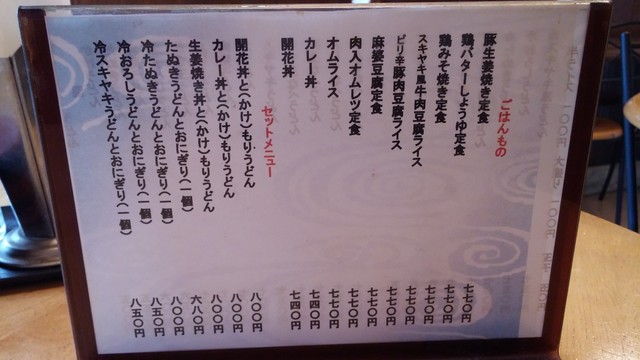 半ライス 一〇〇円 大盛り 一〇〇円 玉子 五〇円
ごはんもの
豚生姜焼き定食 七七〇円
鶏バターしょうゆ定食 七七〇円
鶏みそ焼き定食 七七〇円
スキヤキ風牛肉豆腐ライス 七七〇円
ピリ辛豚肉豆腐ライス 七七〇円
麻婆豆腐定食 七七〇円
肉入オムレツ定食 七七〇円
オムライス 七七〇円
カレー丼 七四〇円
開花丼 七四〇円
セットメニュー
開花丼と(かけ)もりうどん 八〇〇円
カレー丼と(かけ)もりうどん 八〇〇円
生姜焼き丼と(かけ)もりうどん 八〇〇円
たぬきうどんとおにぎり(一個) 六八〇円
冷たぬきうどんとおにぎり(一個) 八〇〇円
冷おろしうどんとおにぎり(一個) 八五〇円
冷スキヤキうどんとおにぎり(一個) 八五〇円